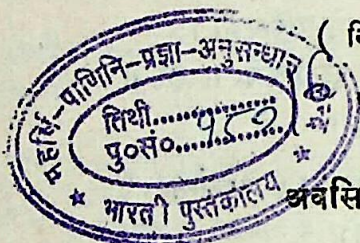 महर्षि-पाणिनि-प्रज्ञा-अनुसन्धान
तिथी..................
पु०सं०..................
भारती पुस्तकालय
अवसि